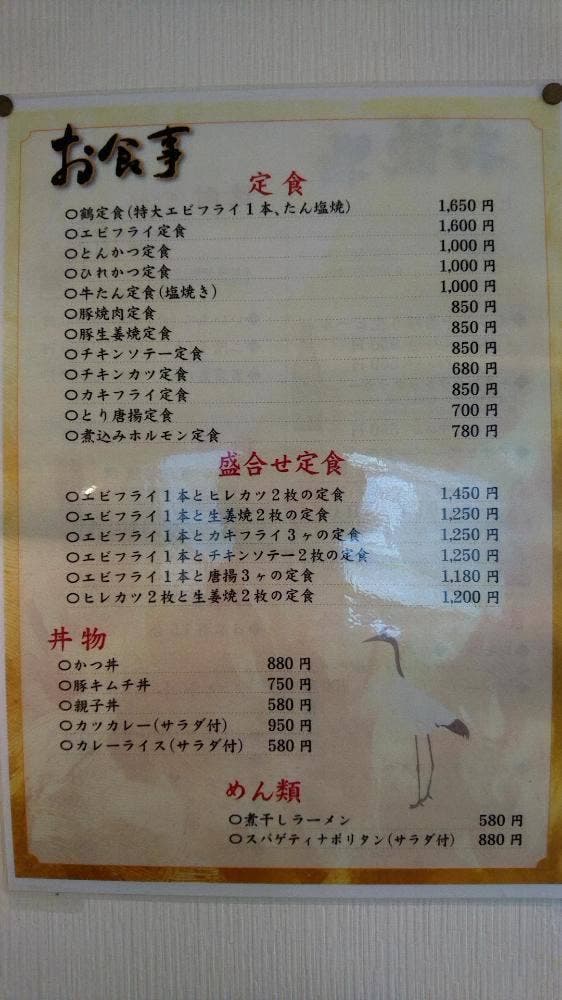 お食事
定食
○鶴定食(特大エビフライ1本、たん塩焼) 1,650円
○エビフライ定食 1,600円
○とんかつ定食 1,000円
○ひれかつ定食 1,000円
○牛たん定食(塩焼き) 1,000円
○豚焼肉定食 850円
○豚生姜焼定食 850円
○チキンソテー定食 850円
○チキンカツ定食 680円
○カキフライ定食 850円
○とり唐揚定食 700円
○煮込みホルモン定食 780円
盛合せ定食
○エビフライ1本とヒレカツ2枚の定食 1,450円
○エビフライ1本と生姜焼2枚の定食 1,250円
○エビフライ1本とカキフライ3ヶの定食 1,250円
○エビフライ1本とチキンソテー2枚の定食 1,250円
○エビフライ1本と唐揚3ヶの定食 1,180円
○ヒレカツ2枚と生姜焼2枚の定食 1,200円
丼物
○かつ丼 880円
○豚キムチ丼 750円
○親子丼 580円
○カツカレー(サラダ付) 950円
○カレーライス(サラダ付) 580円
めん類
○煮干しラーメン 580円
○スパゲティナポリタン(サラダ付) 880円